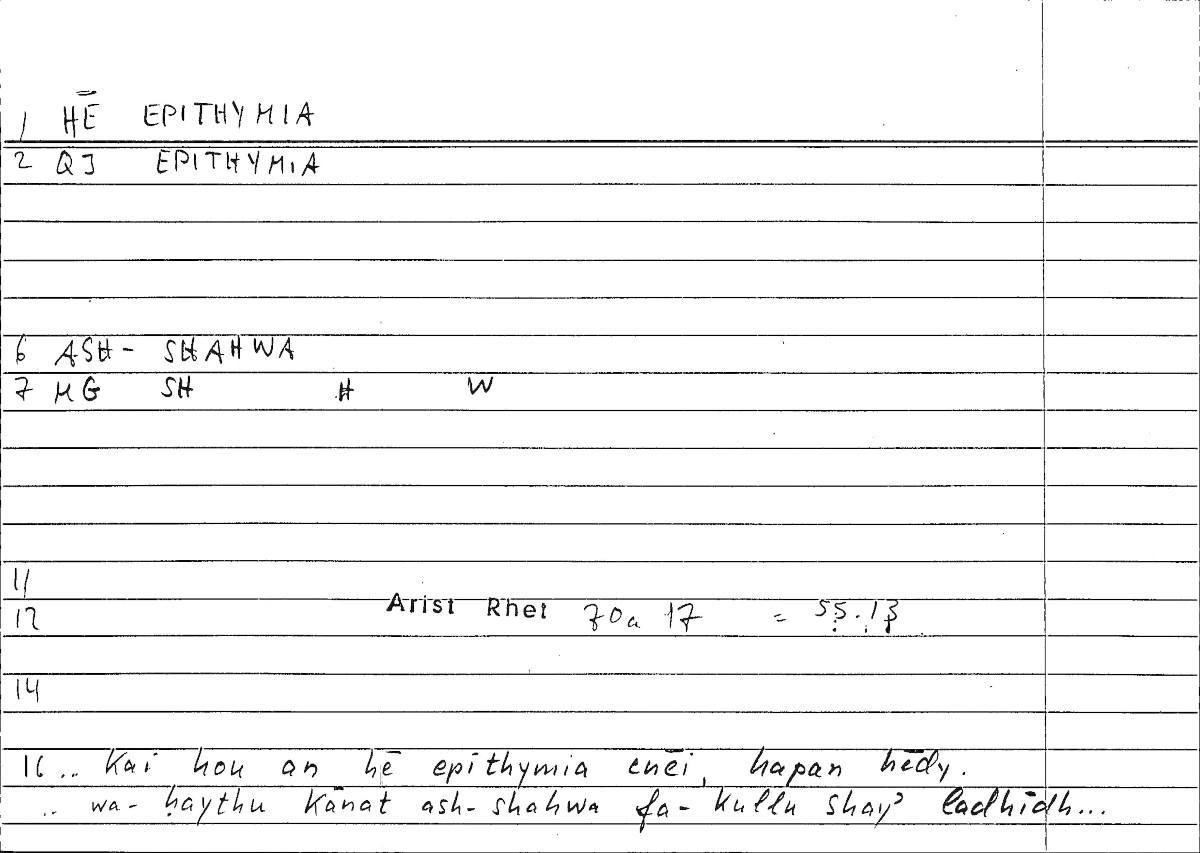 1 HĒ EPITHYMIA
2 QJ EPITHYMIA
6 ASH- SHAHWA
7 MG SH H W
11
12 Arist Rhet 70a 17 = 55.13
14
16 .. Kai hou an hē epithymia enēi, hapan hēdy.
.. wa- ḥaythu kānat ash-shahwa fa- kullu shayʾ ladhīdh...